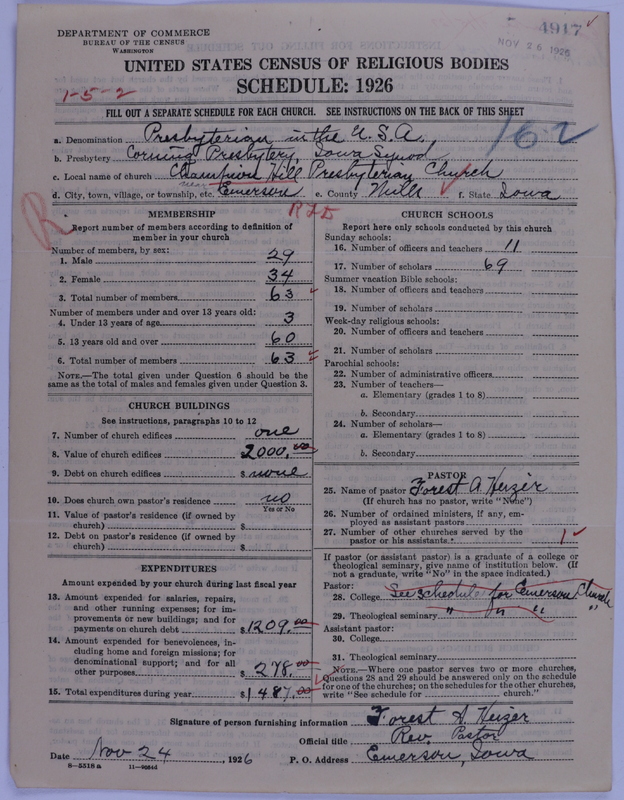 DEPARTMENT OF COMMERCE
BUREAU OF THE CENSUS
WASHINGTON
4917
NOV 26 1926
UNITED STATES CENSUS OF RELIGIOUS BODIES
SCHEDULE: 1926
1-5-2
FILL OUT A SEPARATE SCHEDULE FOR EACH CHURCH. SEE INSTRUCTIONS ON THE BACK OF THIS SHEET
162
a. Denomination Presbyterian in the U.S.A.
b. Presbytery Corning Presbytery, Iowa Synod
c. Local name of church Champion Hill Presbyterian Church
d. City, town, village, or township, etc. near Emerson e. County Mills f. State Iowa
R
MEMBERSHIP
Report number of members according to definition of member in your church
Number of members, by sex:
1. Male 29
2. Female 34
3. Total number of members 63
Number of members under and over 13 years old:
4. Under 13 years of age 3
5. 13 years old and over 60
6. Total number of members 63
NOTE.—The total given under Question 6 should be the same as the total of males and females given under Question 3.
CHURCH BUILDINGS
See instructions, paragraphs 10 to 12
7. Number of church edifices one
8. Value of church edifices $2000.00
9. Debt on church edifices $ none
10. Does church own pastor's residence no
Yes or No
11. Value of pastor's residence (if owned by church) $
12. Debt on pastor's residence (if owned by church) $
EXPENDITURES
Amount expended by your church during last fiscal year
13. Amount expended for salaries, repairs, and other running expenses; for improvements or new buildings; and for payments on church debt $1209.00
14. Amount expended for benevolences, including home and foreign missions; for denominational support; and for all other purposes $278.00
15. Total expenditures during year $1487.00
CHURCH SCHOOLS
Report here only schools conducted by this church
Sunday schools:
16. Number of officers and teachers 11
17. Number of scholars 69
Summer vacation Bible schools:
18. Number of officers and teachers
19. Number of scholars
Week-day religious schools:
20. Number of officers and teachers
21. Number of scholars
Parochial schools:
22. Number of administrative officers
23. Number of teachers—
a. Elementary (grades 1 to 8)
b. Secondary
24. Number of scholars—
a. Elementary (grades 1 to 8)
b. Secondary
PASTOR
25. Name of pastor Forest A. Heizer
(If church has no pastor, write "None")
26. Number of ordained ministers, if any, employed as assistant pastors
27. Number of other churches served by the pastor or his assistants 1
If pastor (or assistant pastor) is a graduate of a college or theological seminary, give name of institution below. (If not a graduate, write "No" in the space indicated.)
Pastor:
28. College See schedule for Emerson Church
29. Theological seminary " " " "
Assistant pastor:
30. College
31. Theological seminary
NOTE.—Where one pastor serves two or more churches, Questions 28 and 29 should be answered only on the schedule for one of the churches; on the schedules for the other churches, write "See schedule for church."
Signature of person furnishing information Forest A. Heizer
Official title Rev. Pastor
Date Nov 24, 1926 P. O. Address Emerson, Iowa
8—5518 a